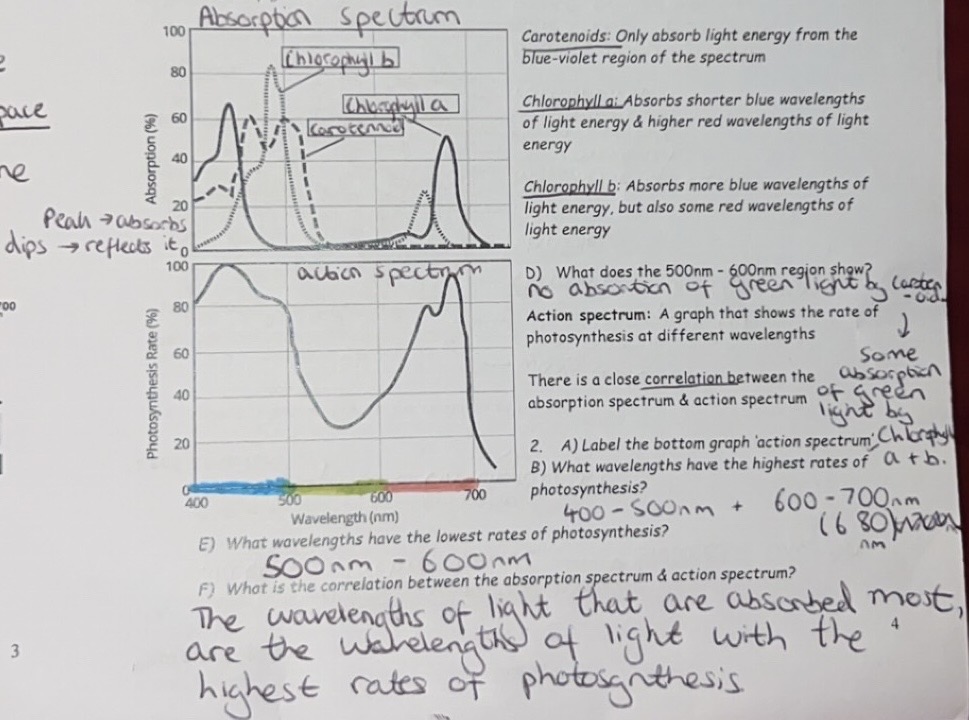 Absorption spectrum
100
80
60
40
20
0
Absorption (%)
Chlorophyll b
Chlorophyll a
Carotenoid
pace
ne
Peak → absorbs
dips → reflects it
action spectrum
100
80
60
40
20
0
Photosynthesis Rate (%)
400 500 600 700
Wavelength (nm)
Carotenoids: Only absorb light energy from the
blue-violet region of the spectrum
Chlorophyll a: Absorbs shorter blue wavelengths
of light energy & higher red wavelengths of light
energy
Chlorophyll b: Absorbs more blue wavelengths of
light energy, but also some red wavelengths of
light energy
D) What does the 500nm - 600nm region show?
no absorbtion of green light by
Action spectrum: A graph that shows the rate of
photosynthesis at different wavelengths
↓
some
absorption
of green
light by
Chlorophyll
a + b.
There is a close correlation between the
absorption spectrum & action spectrum
2. A) Label the bottom graph 'action spectrum'
B) What wavelengths have the highest rates of
photosynthesis?
400 - 500nm + 600 - 700nm
(680
nm
E) What wavelengths have the lowest rates of photosynthesis?
500nm - 600nm
F) What is the correlation between the absorption spectrum & action spectrum?
The wavelengths of light that are absorbed most,
are the wavelengths of light with the
highest rates of photosynthesis
3
4